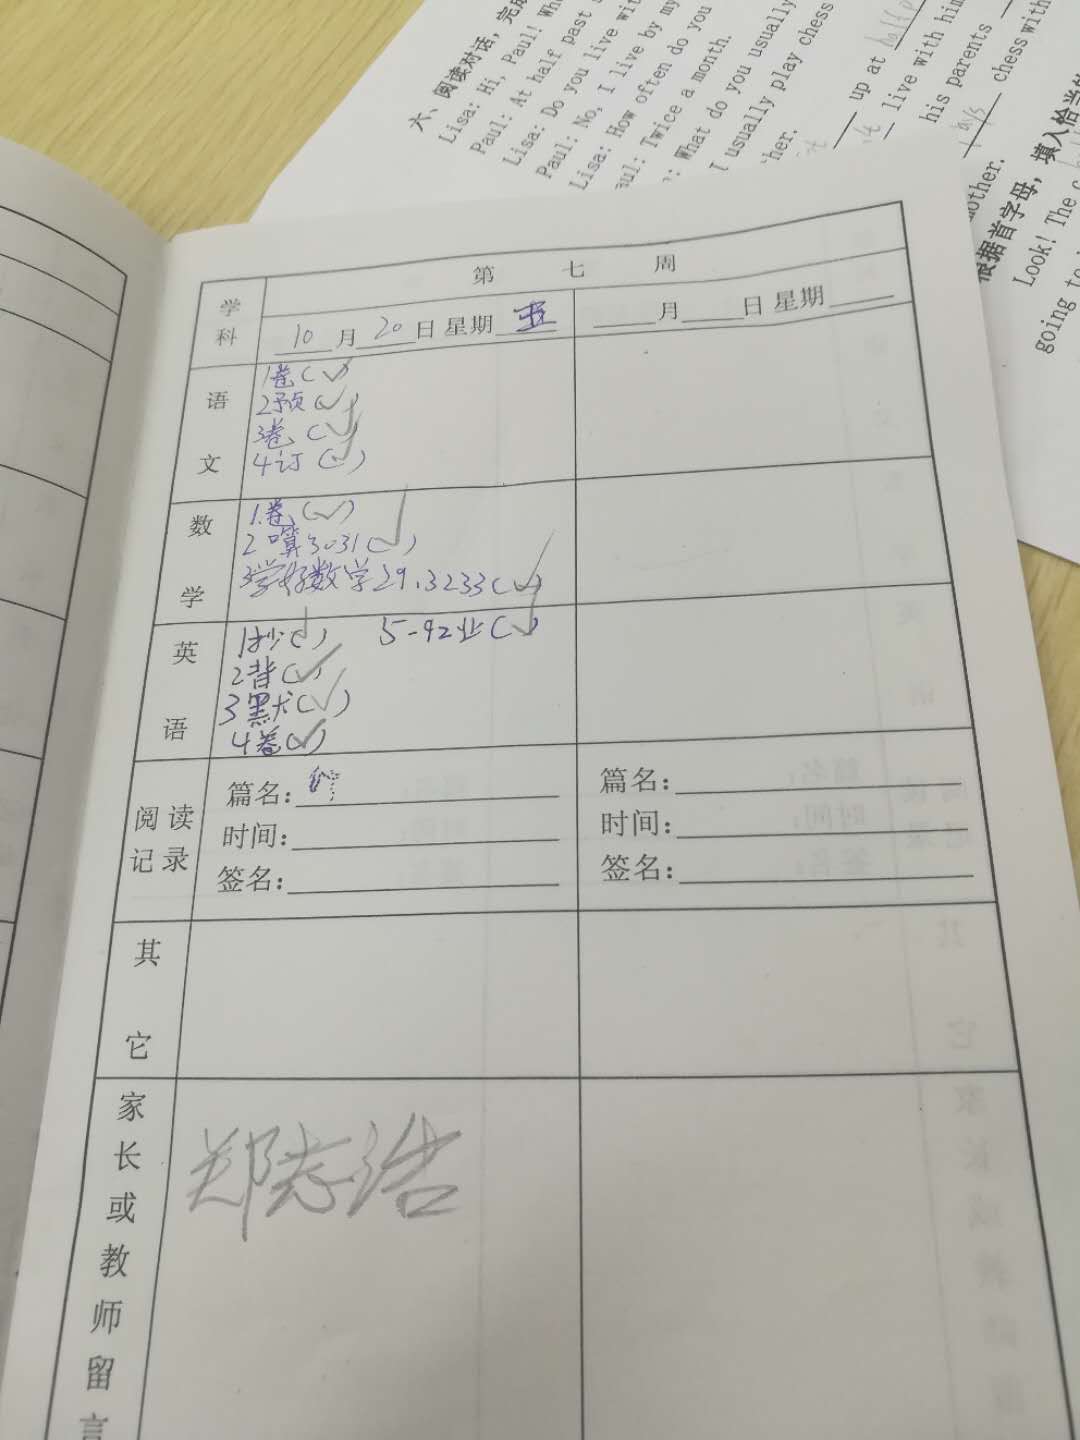 六、阅读对话，完成
Lisa: Hi, Paul! Wh
Paul: At half past s
Lisa: Do you live wit
Paul: No, I live by my
Lisa: How often do you
aul: Twice a month.
: What do you usually
I usually play chess
her.
up at half p
live with him
his parents
chess with
mother.
根据首字母，填入恰当的
Look! The c
going to
学科
第 七 周
10月20日 星期五
月 日 星期
语文
1卷(✓)
2预(✓)
3卷(✓)
4订(✓)
数学
1.卷(✓)
2 口算3031(✓)
3学好数学29.3233(✓)
英语
1抄(✓) 5-92业(✓)
2背(✓)
3默(✓)
4卷(✓)
阅读记录
篇名：
时间：
签名：
篇名：
时间：
签名：
其它
家长或教师留言
郑志浩